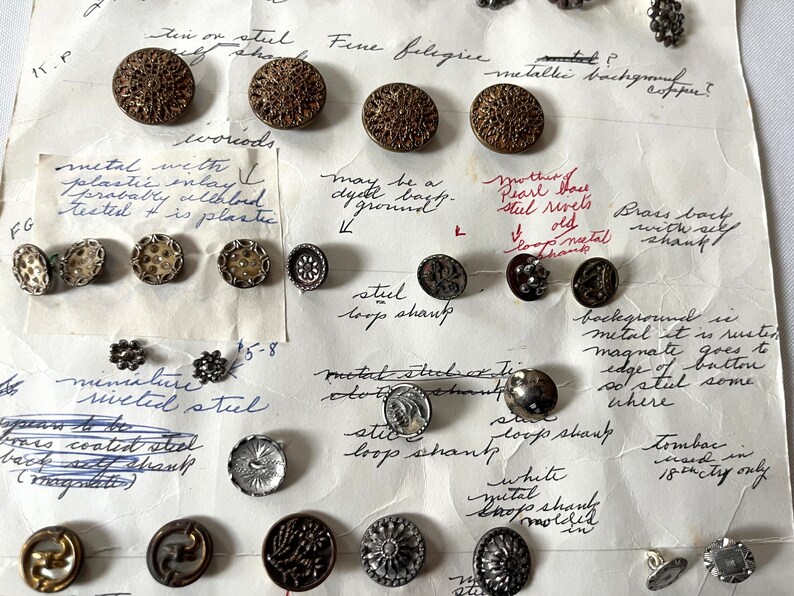 tin or steel
self shank
Fine filigree
metal ?
metallic background
copper?
woriods
metal with
plastic enlay
probably alkaloid
tested + is plastic
may be a
dyed back-
ground
mother of
Pearl base
steel rivets
old
loop metal
shank
Brass back
with self
shank
EG
steel
loop shank
background is
metal it is rusted
magnate goes to
edge of button
so steel some
where
$5-8
miniature
riveted steel
metal steel or ti
shank
appears to be
brass coated steel
back self shank
(magnate)
steel
loop shank
steel
loop shank
tombac
used in
18th cty only
white
metal
loop shank
molded
in